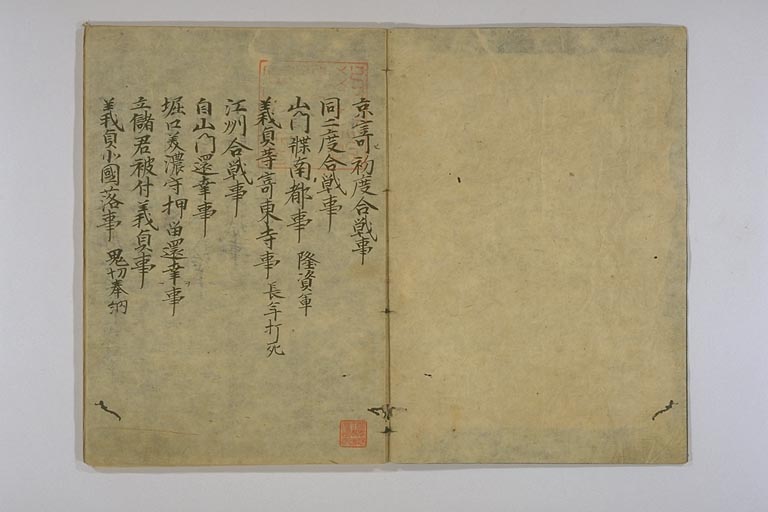 京寄初度合戦事
同二度合戦事
山門牒南都事 隆資軍
義貞等寄東寺事 長年打死
江州合戦事
自山門還幸事
堀口美濃守押留還幸事
立儲君被付義貞事
義貞小國落事 鬼切奉納